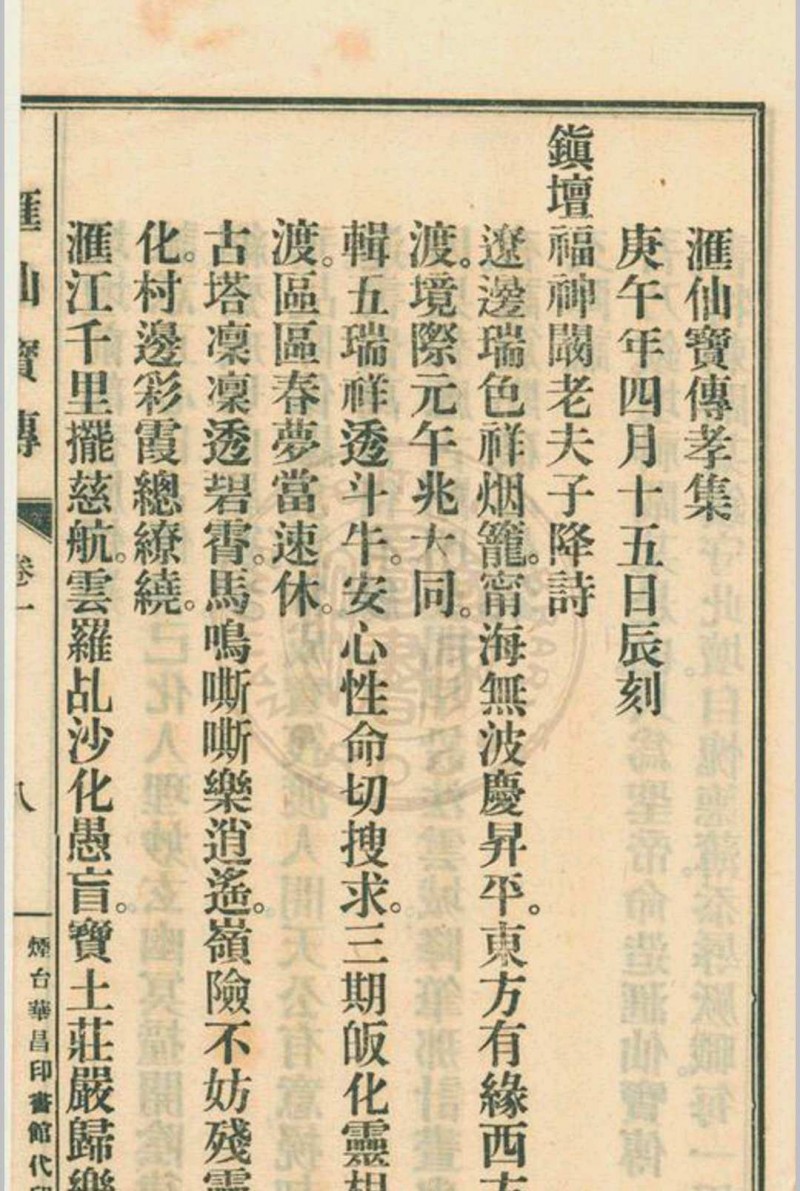 滙仙寶傳孝集
庚午年四月十五日辰刻
鎭壇福神闞老夫子降詩
遼邊瑞色祥烟籠。甯海無波慶昇平。東方有緣西
渡。境際元午兆大同。
輯五瑞祥透斗牛。安心性命切搜求。三期皈化靈
渡。區區春夢當速休。
古塔凜凜透碧霄。馬鳴嘶嘶樂逍遙。嶺險不妨殘
化。村邊彩霞總繚繞。
滙江千里擺慈航。雲羅乩沙化愚盲。寶土莊嚴歸樂
滙仙寶傳
卷一
八
煙台華昌印書館代印